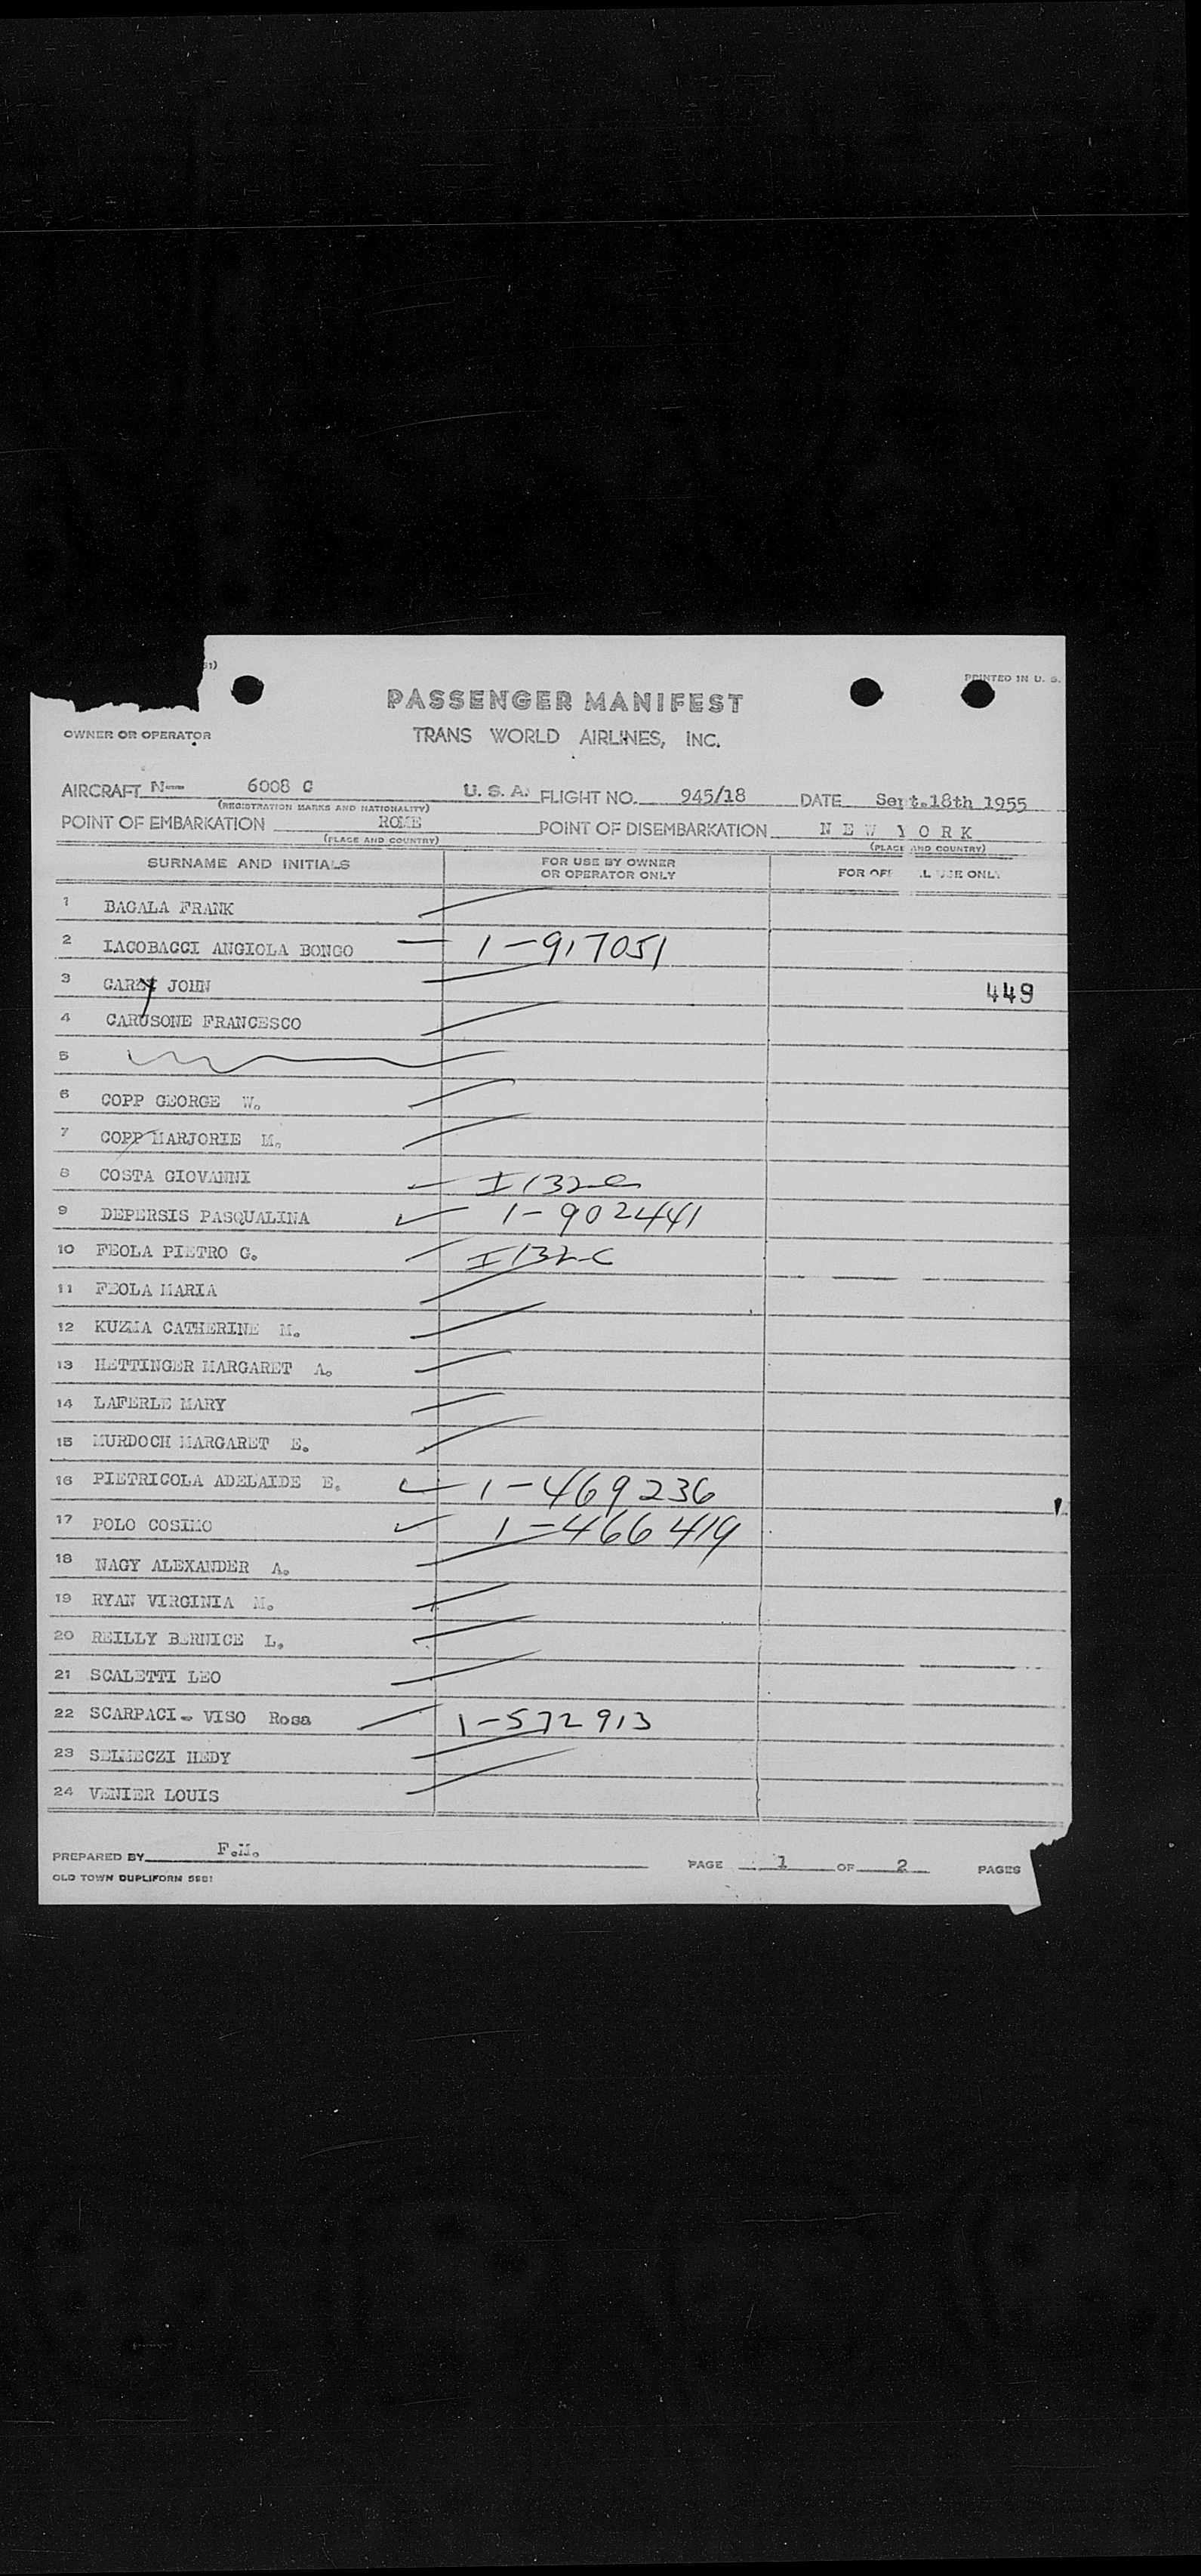 51)
PRINTED IN U. S.
PASSENGER MANIFEST
OWNER OR OPERATOR
TRANS WORLD AIRLINES, INC.
AIRCRAFT N-- 6008 C U. S. A. FLIGHT NO. 945/18 DATE Sept.18th 1955
(REGISTRATION MARKS AND NATIONALITY)
POINT OF EMBARKATION ROME POINT OF DISEMBARKATION N E W Y O R K
(PLACE AND COUNTRY) (PLACE AND COUNTRY)
SURNAME AND INITIALS FOR USE BY OWNER OR OPERATOR ONLY FOR OFF L USE ONLY
1 BAGALA FRANK
2 IACOBACCI ANGIOLA BONGO 1-917051
3 CAREY JOHN 449
4 CARUSONE FRANCESCO
5
6 COPP GEORGE W.
7 COPP MARJORIE M.
8 COSTA GIOVANNI I132-C
9 DEPERSIS PASQUALINA 1-902441
10 FEOLA PIETRO G. I132-C
11 FEOLA MARIA
12 KUZMA CATHERINE M.
13 HETTINGER MARGARET A.
14 LAFERLE MARY
15 MURDOCH MARGARET E.
16 PIETRICOLA ADELAIDE E. 1-469236
17 POLO COSIMO 1-466419
18 NAGY ALEXANDER A.
19 RYAN VIRGINIA M.
20 REILLY BERNICE L.
21 SCALETTI LEO
22 SCARPACI- VISO Rosa 1-572913
23 SELMECZI HEDY
24 VENIER LOUIS
PREPARED BY F.M. PAGE 1 OF 2 PAGES
OLD TOWN DUPLIFORM 5981